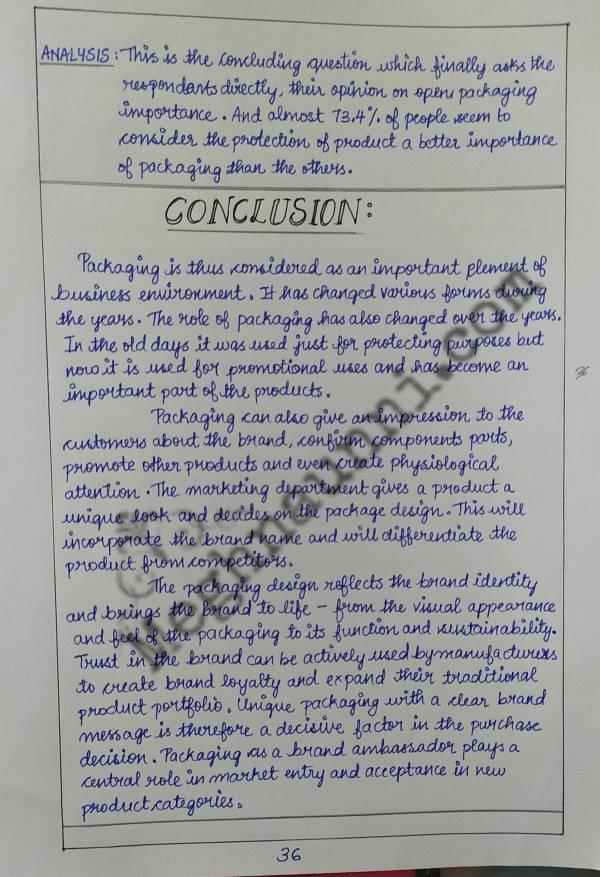 ANALYSIS: This is the concluding question which finally asks the
respondants directly, their opinion on openi packaging
importance. And almost 73.4% of people seem to
consider the protection of product a better importance
of packaging than the others.
CONCLUSION:
Packaging is thus considered as an important plement of
business environment. It has changed various forms during
the years. The role of packaging has also changed over the years.
In the old days it was used just for protecting purposes but
now it is used for promotional uses and has become an
important part of the products.
Packaging can also give an impression to the
customers about the brand, confirm components parts,
promote other products and even create physiological
attention. The marketing department gives a product a
unique look and decides on the package design. This will
incorporate the brand name and will differentiate the
product from competitors.
The packaging design reflects the brand identity
and brings the brand to life - from the visual appearance
and feel of the packaging to its function and sustainability.
Trust in the brand can be actively used by manufacturers
to create brand loyalty and expand their traditional
product portfolio. Unique packaging with a clear brand
message is therefore a decisive factor in the purchase
decision. Packaging as a brand ambassador plays a
central role in market entry and acceptance in new
product categories.
36